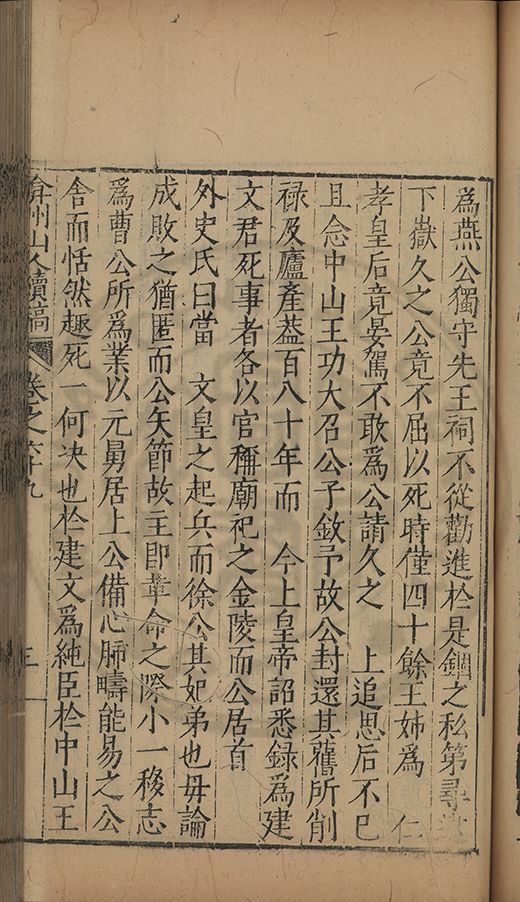 為燕公獨守先王祠不從勸進於是錮之私第尋
下嶽久之公竟不屈以死時僅四十餘王姊為 仁
孝皇后竟晏駕不敢為公請久之 上追思后不已
且念中山王功大召公子欽予故公封還其舊所削
祿及廬產葢百八十年而 今上皇帝詔悉録為建
文君死事者各以官稱廟祀之金陵而公居首
外史氏曰當 文皇之起兵而徐公其妃弟也毋論
成敗之猶匿而公矢節故主即革命之際小一移志
為曹公所為業以元舅居上公備心膂疇能易之公
舍而恬然趣死一何决也於建文為純臣於中山王
弇州山人續稿 卷之六十九 三